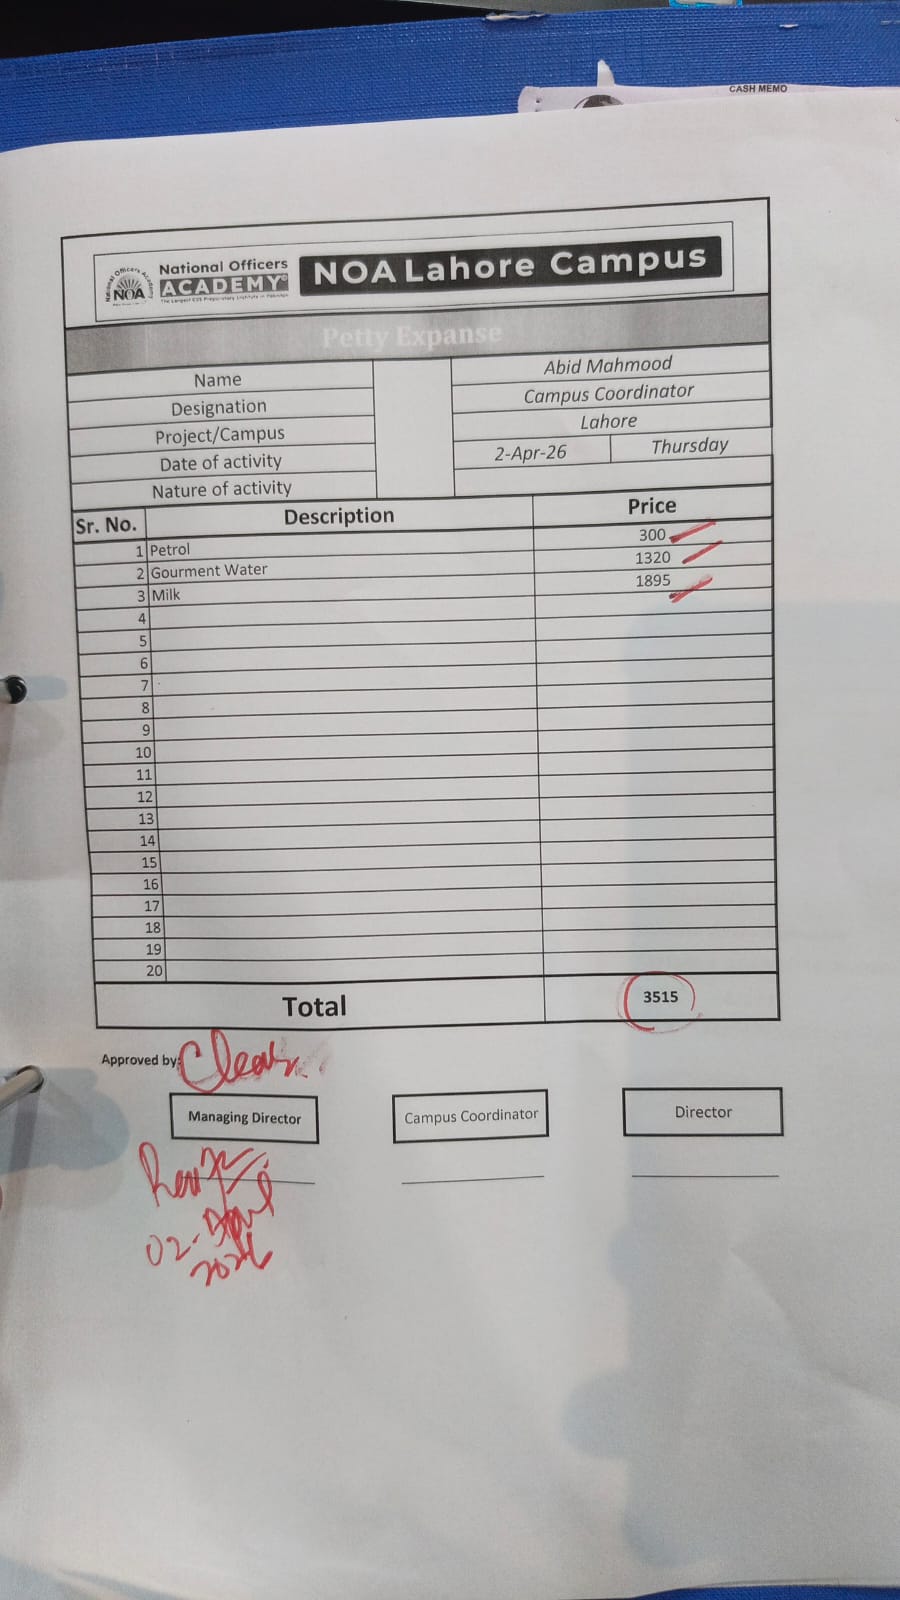 CASH MEMO
National Officers Academy
NOA
National Officers
ACADEMY
The Largest CSS Preparatory Institute in Pakistan
NOA Lahore Campus
Petty Expanse
Name Abid Mahmood
Designation Campus Coordinator
Project/Campus Lahore
Date of activity 2-Apr-26 Thursday
Nature of activity
Sr. No. Description Price
1 Petrol 300
2 Gourment Water 1320
3 Milk 1895
4
5
6
7
8
9
10
11
12
13
14
15
16
17
18
19
20
Total 3515
Approved by: Clear
Managing Director Campus Coordinator Director
02-April
2026